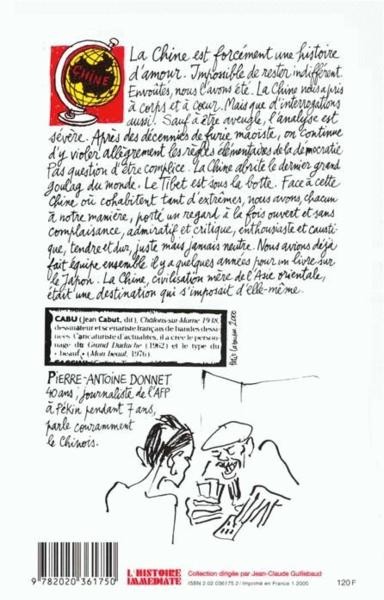 CHINE
La Chine est forcément une histoire
d'amour. Impossible de rester indifférent.
Envoûtés, nous l'avons été. La Chine nous a pris
à corps et à cœur. Mais que d'interrogations
aussi! Sauf à être aveugle, l'analyse est
sévère. Après des décennies de furie maoïste, on continue
d'y violer allègrement les règles élémentaires de la démocratie
Pas question d'être complice. La Chine abrite le dernier grand
goulag du monde. Le Tibet est sous la botte. Face à cette
Chine où cohabitent tant d'extrêmes, nous avons, chacun
à notre manière, porté un regard à la fois ouvert et sans
complaisance, admiratif et critique, enthousiaste et causti-
que, tendre et dur, juste mais jamais neutre. Nous avions déjà
fait équipe ensemble il y a quelques années pour un livre sur
le Japon. La Chine, civilisation mère de l'Asie orientale,
était une destination qui s'imposait d'elle-même.
CABU (Jean Cabut, dit), Châlons-sur-Marne 1938,
dessinateur et scénariste français de bandes dessi-
nées. Caricaturiste d'actualités, il a créé le person-
nage du Grand Duduche (1962) et le type du
« beauf » (Mon beauf, 1976)
2000
PIERRE-ANTOINE DONNET
40 ans; journaliste de l'AFP
à Pékin pendant 7 ans,
parle couramment
le Chinois.
9 782020 361750
L'HISTOIRE
IMMÉDIATE
Collection dirigée par Jean-Claude Guillebaud
ISBN 2.02.036175.2 / Imprimé en France 1.2000
120 F